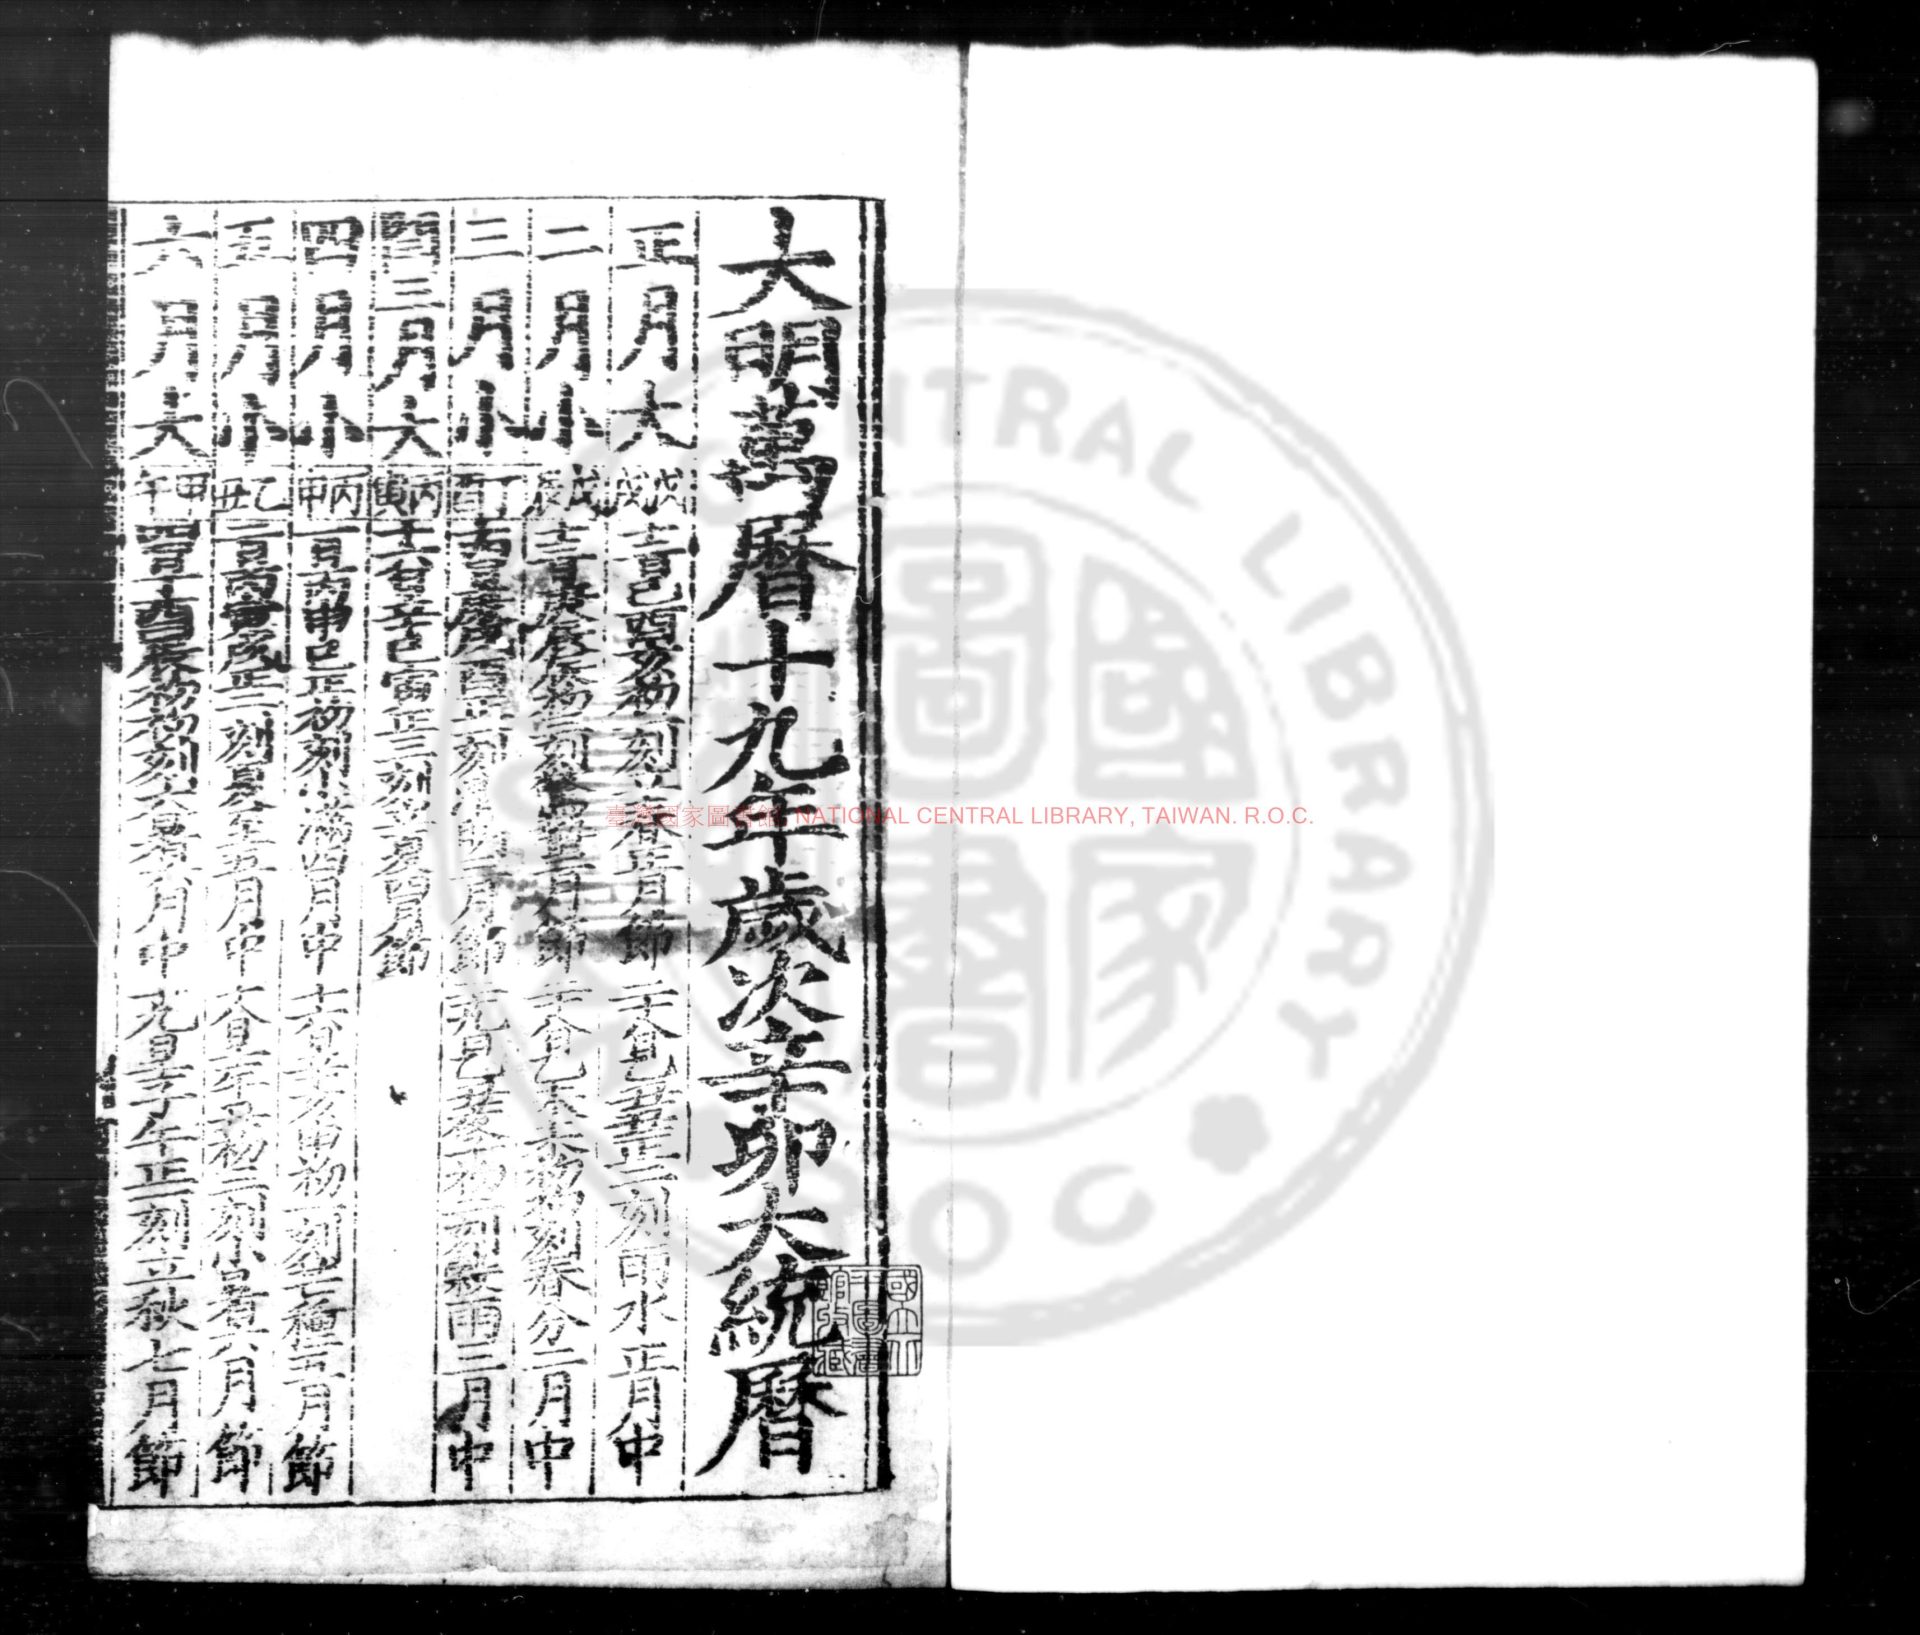 大明萬曆十九年歲次辛卯大統曆
正月大 戊戌 十二日己酉亥初一刻立春正月節 二十八日乙丑丑正二刻雨水正月中
二月小 戊辰 十三日庚辰辰初三刻驚蟄二月節 二十八日乙未未初初刻春分二月中
三月小 丁酉 十四日庚戌酉正一刻清明三月節 二十九日乙丑夜子初一刻穀雨三月中
閏三月大 丙寅 十六日辛巳寅正三刻立夏四月節
四月小 丙申 一日丙申巳正初刻小滿四月中 十六日辛亥申初一刻芒種五月節
五月小 乙丑 二日丙寅戌正二刻夏至五月中 十八日壬午丑初三刻小暑六月節
六月大 甲午 四日丁酉辰初初刻大暑六月中 十九日壬子午正一刻立秋七月節
臺灣國家圖書館, NATIONAL CENTRAL LIBRARY, TAIWAN. R.O.C.